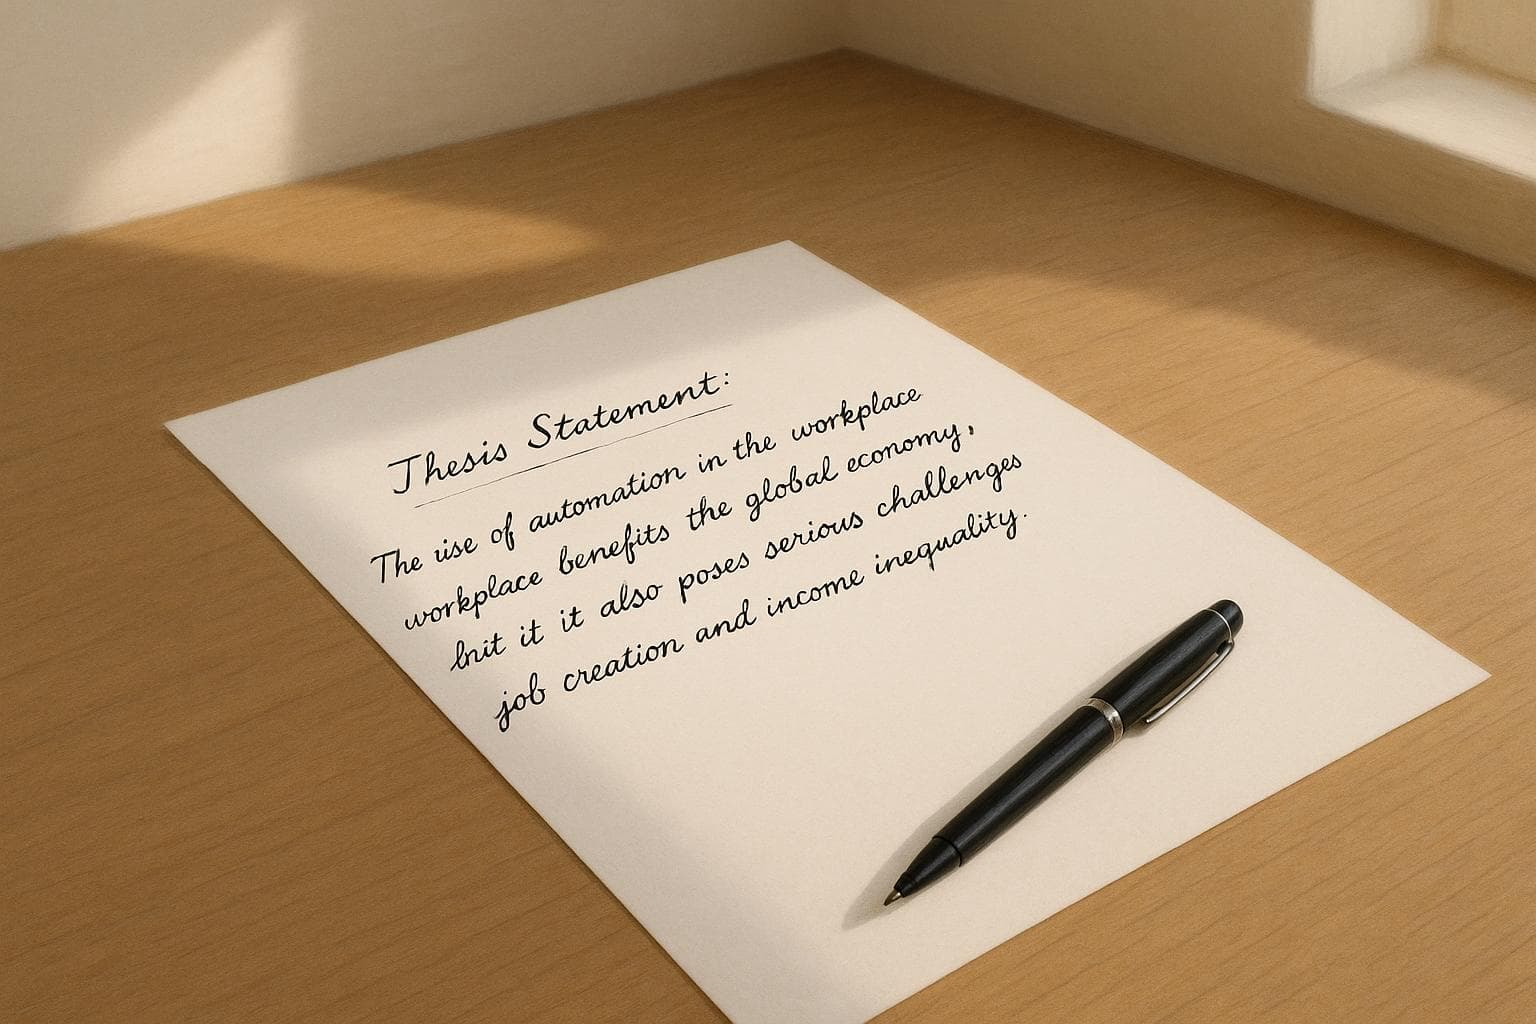 Thesis Statement:
The use of automation in the workplace
workplace benefits the global economy,
but it it also poses serious challenges
job creation and income inequality.